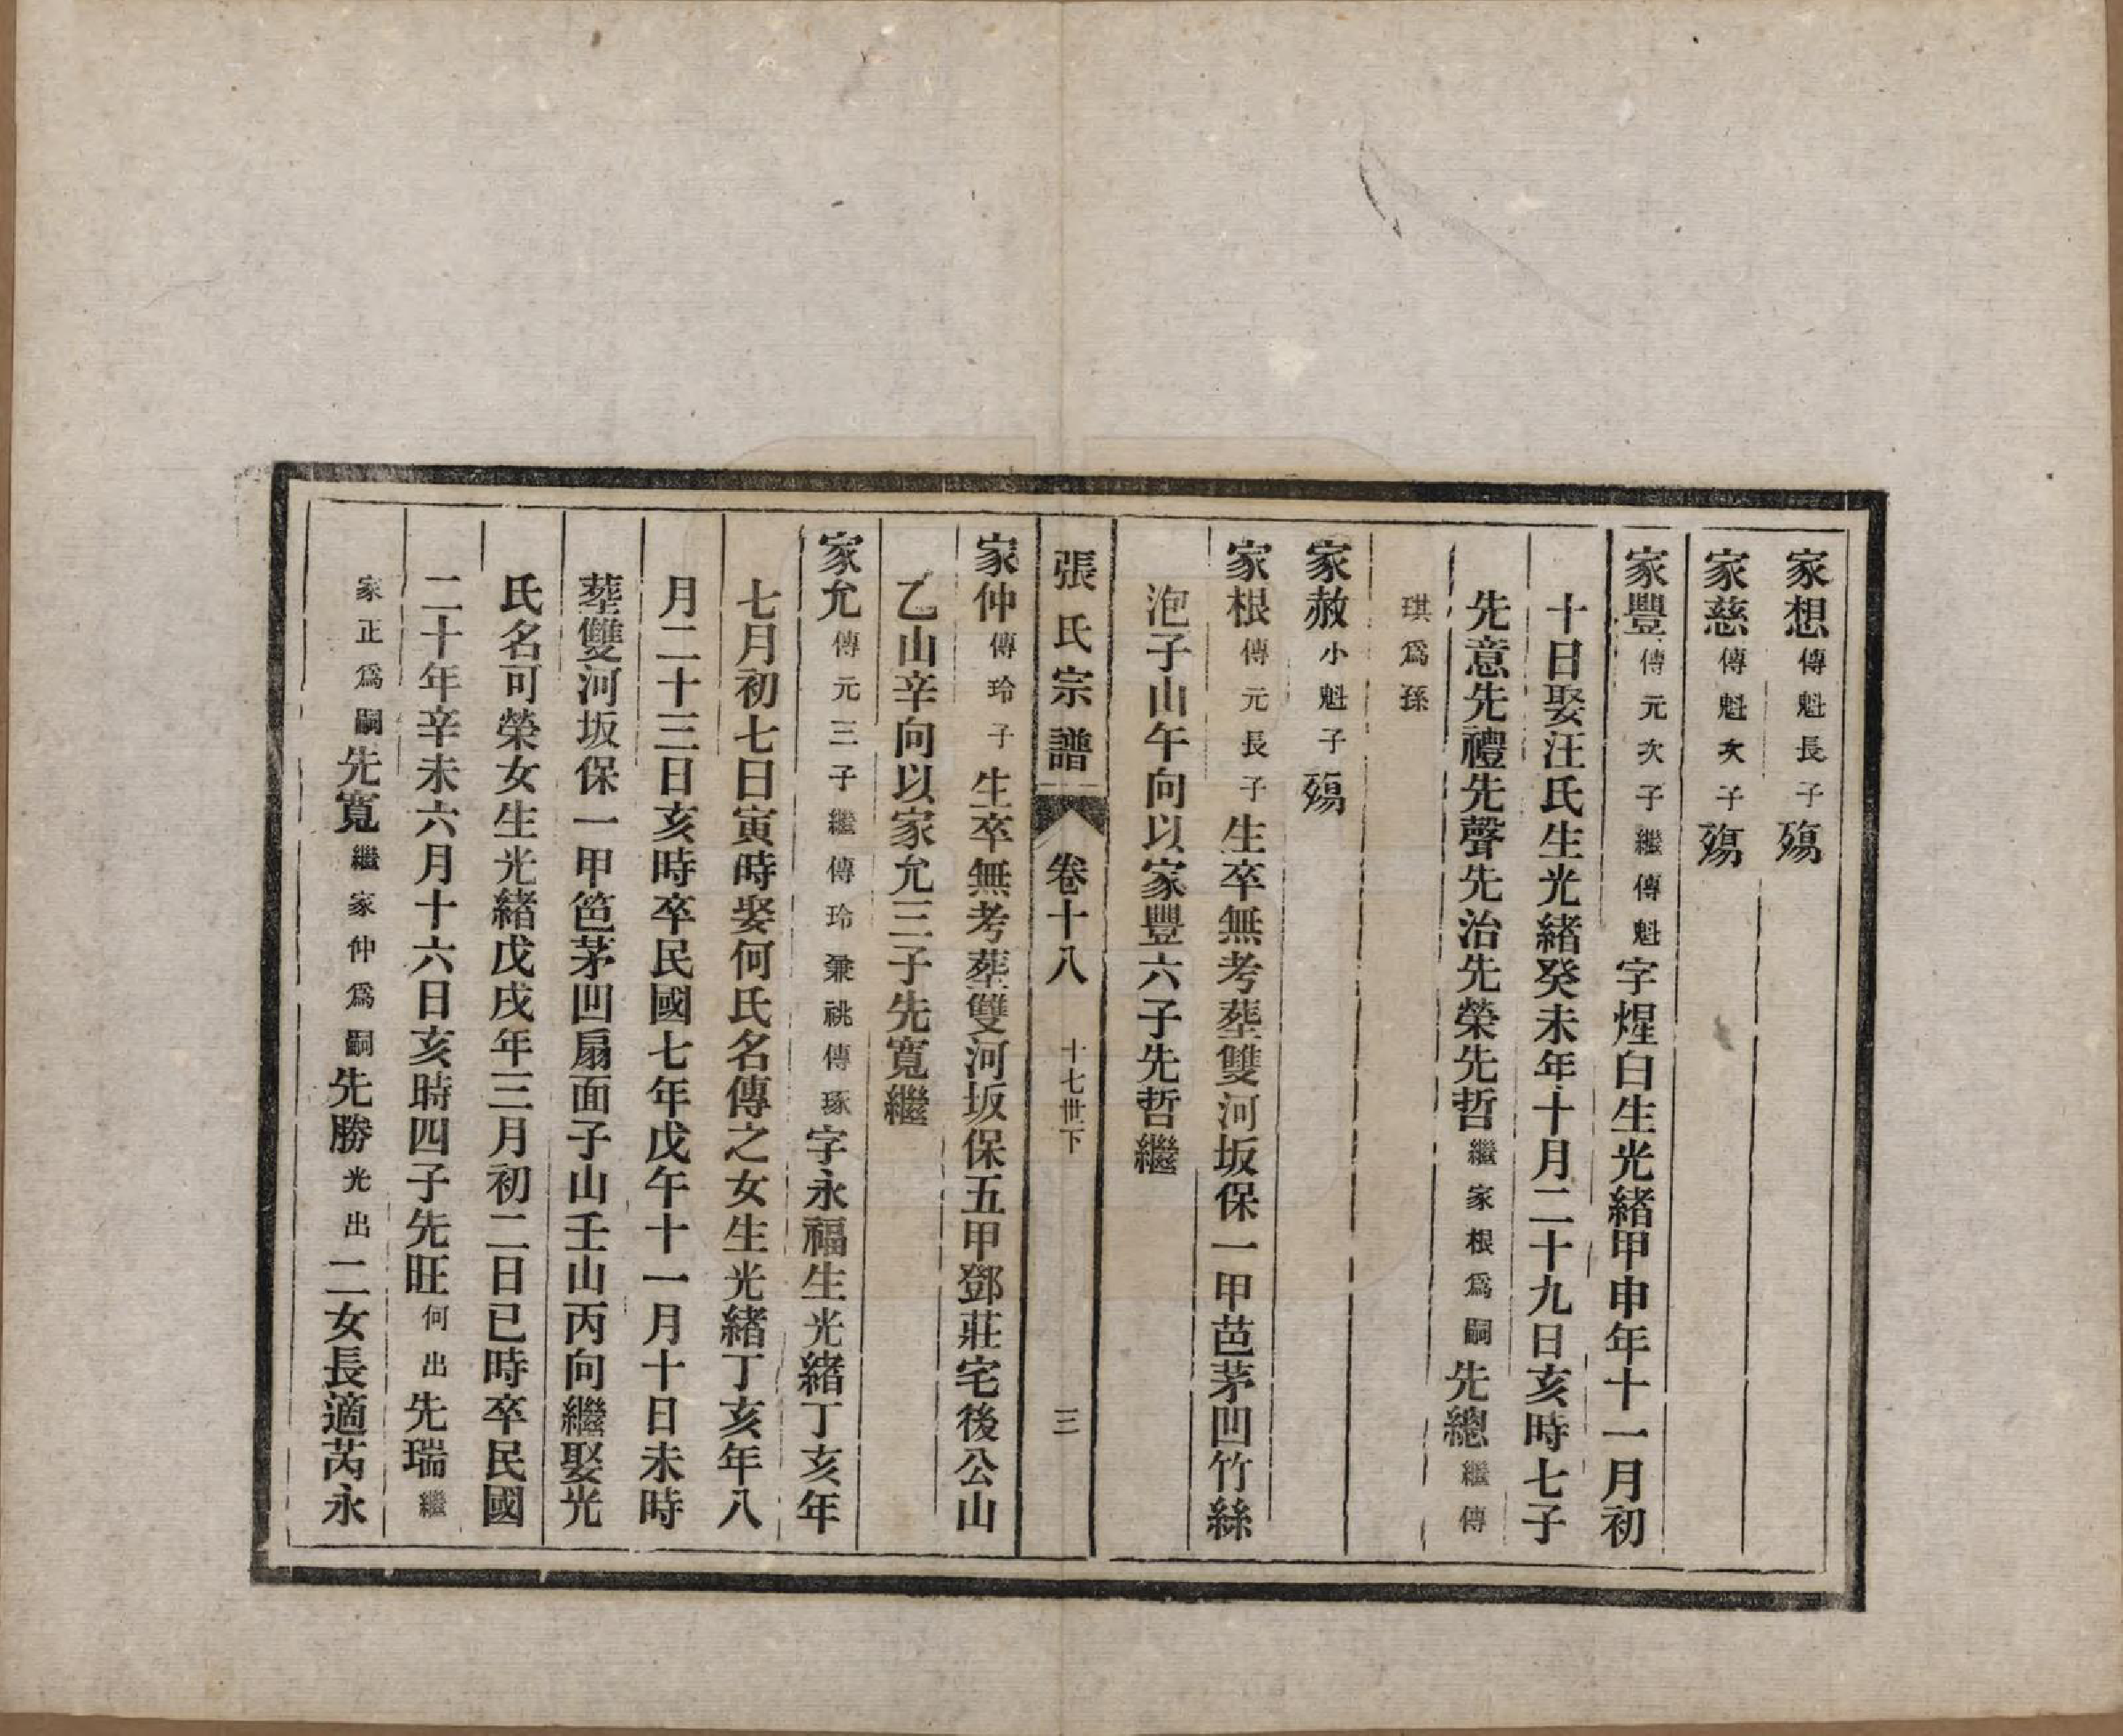 家想傳魁長子殤
家慈傳魁次子殤
家豐傳元次子繼傳魁字煋白生光緒甲申年十一月初
十日娶汪氏生光緒癸未年十月二十九日亥時七子
先意先禮先聲先治先榮先哲繼家根爲嗣先總繼傳
琪爲孫
家赦小魁子殤
家根傳元長子生卒無考塟雙河坂保一甲芭茅凹竹絲
泡子山午向以家豐六子先哲繼
張氏宗譜 卷十八 十七世下 三
家仲傳玲子生卒無考塟雙河坂保五甲鄧莊宅後公山
乙山辛向以家允三子先寬繼
家允傳元三子繼傳玲兼祧傳琢字永福生光緒丁亥年
七月初七日寅時娶何氏名傳之女生光緒丁亥年八
月二十三日亥時卒民國七年戊午十一月十日未時
塟雙河坂保一甲笆茅凹扇面子山壬山丙向繼娶光
氏名可榮女生光緒戊戌年三月初二日巳時卒民國
二十年辛未六月十六日亥時四子先旺何出先瑞繼
家正爲嗣先寬繼家仲爲嗣先勝光出二女長適芮永